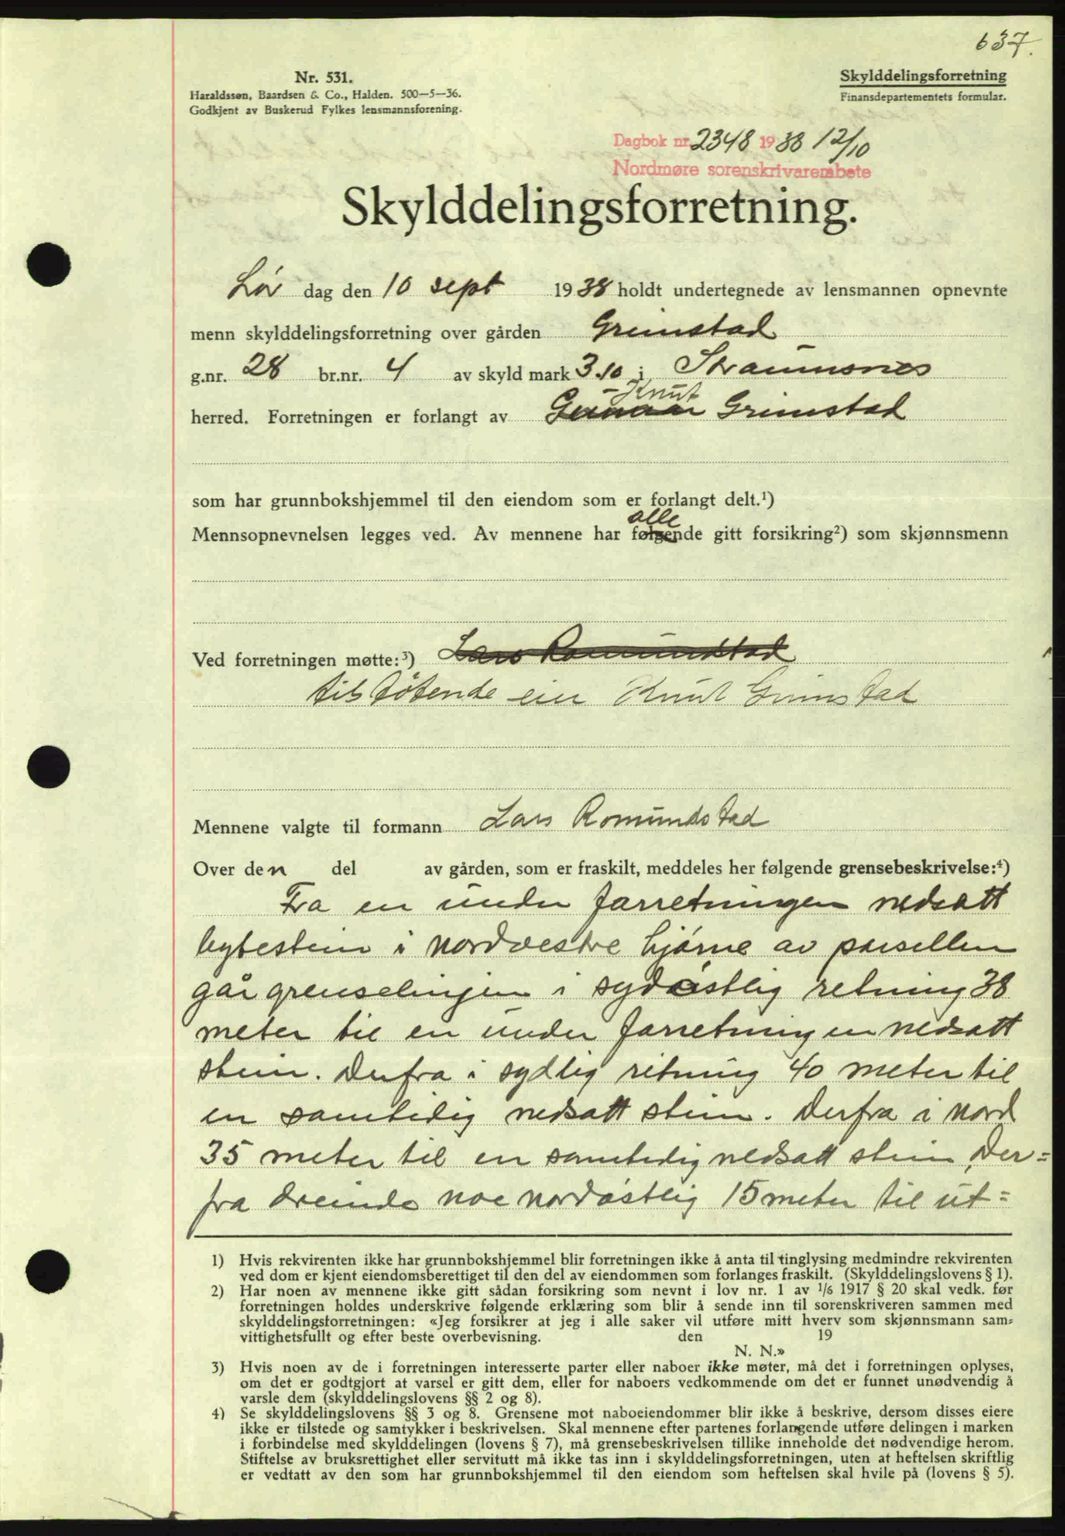 637.
Nr. 531.
Haraldssøn, Baardsen & Co., Halden. 500—5—36.
Godkjent av Buskerud Fylkes lensmannsforening.
Skylddelingsforretning
Finansdepartementets formular.
Dagbok nr. 2348 1938 12/10
Nordmøre sorenskrivarembete
Skylddelingsforretning.
Lør dag den 10 sept 1938 holdt undertegnede av lensmannen opnevnte
menn skylddelingsforretning over gården Grimstad
g.nr. 28 br.nr. 4 av skyld mark 3.10 i Straumsnes
Knut
herred. Forretningen er forlangt av Gunnar Grimstad
som har grunnbokshjemmel til den eiendom som er forlangt delt.¹)
alle
Mennsopnevnelsen legges ved. Av mennene har følgende gitt forsikring²) som skjønnsmenn
Ved forretningen møtte:³) Lars Romundstad
tilstøtende eier Knut Grimstad
Mennene valgte til formann Lars Romundstad
Over den del av gården, som er fraskilt, meddeles her følgende grensebeskrivelse:⁴)
Fra en under forretningen nedsatt
bytestein i nordvestre hjørne av parsellen
går grenselinjen i sydøstlig retning 38
meter til en under forretningen nedsatt
stein. Derfra i sydlig retning 40 meter til
en samtidig nedsatt stein. Derfra i nord
35 meter til en samtidig nedsatt stein. Der=
fra dreinde noe nordøstlig 15 meter til ut=
1) Hvis rekvirenten ikke har grunnbokshjemmel blir forretningen ikke å anta til tinglysing medmindre rekvirenten
ved dom er kjent eiendomsberettiget til den del av eiendommen som forlanges fraskilt. (Skylddelingslovens § 1).
2) Har noen av mennene ikke gitt sådan forsikring som nevnt i lov nr. 1 av 1/6 1917 § 20 skal vedk. før
forretningen holdes underskrive følgende erklæring som blir å sende inn til sorenskriveren sammen med
skylddelingsforretningen: «Jeg forsikrer at jeg i alle saker vil utføre mitt hverv som skjønnsmann sam=
vittighetsfullt og efter beste overbevisning. den 19
N. N.»
3) Hvis noen av de i forretningen interesserte parter eller naboer ikke møter, må det i forretningen oplyses,
om det er godtgjort at varsel er gitt dem, eller for naboers vedkommende om det er funnet unødvendig å
varsle dem (skylddelingslovens §§ 2 og 8).
4) Se skylddelingslovens §§ 3 og 8. Grensene mot naboeiendommer blir ikke å beskrive, dersom disses eiere
ikke er tilstede og samtykker i beskrivelsen. Skal mennene efter partenes forlangende utføre delingen i marken
i forbindelse med skylddelingen (lovens § 7), må grensebeskrivelsen tillike inneholde det nødvendige herom.
Stiftelse av bruksrettighet eller servitutt må ikke tas inn i skylddelingsforretningen, uten at heftelsen skriftlig
er vedtatt av den som har grunnbokshjemmel til den eiendom som heftelsen skal hvile på (lovens § 5).